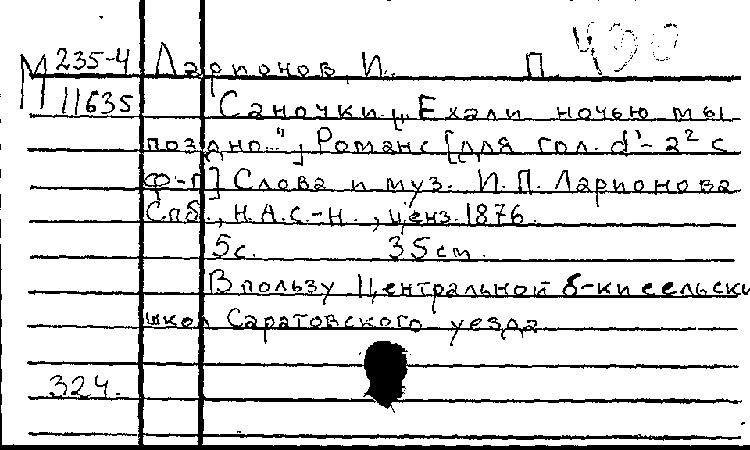 М 235-4 Ларионов, И. П. 490
11635 Саночки („Ехали ночью мы
поздно..."); Романс [для гол. d¹- a² с
ф-п] Слова и муз. И. П. Ларионова
Спб., Н.А.С-н., ценз. 1876.
5с. 35 см.
В пользу Центральной б-ки сельски
школ Саратовского уезда
324.